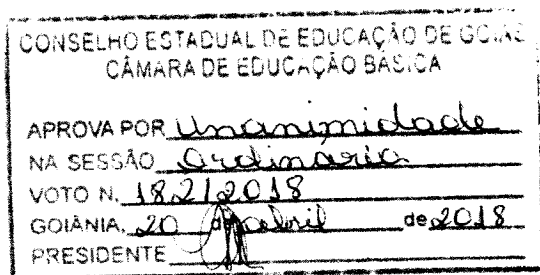 CONSELHO ESTADUAL DE EDUCAÇÃO DE GOIÁS
CÂMARA DE EDUCAÇÃO BÁSICA
APROVA POR Unanimidade
NA SESSÃO Ordinária
VOTO N. 182/2018
GOIÂNIA, 20 de abril de 2018
PRESIDENTE